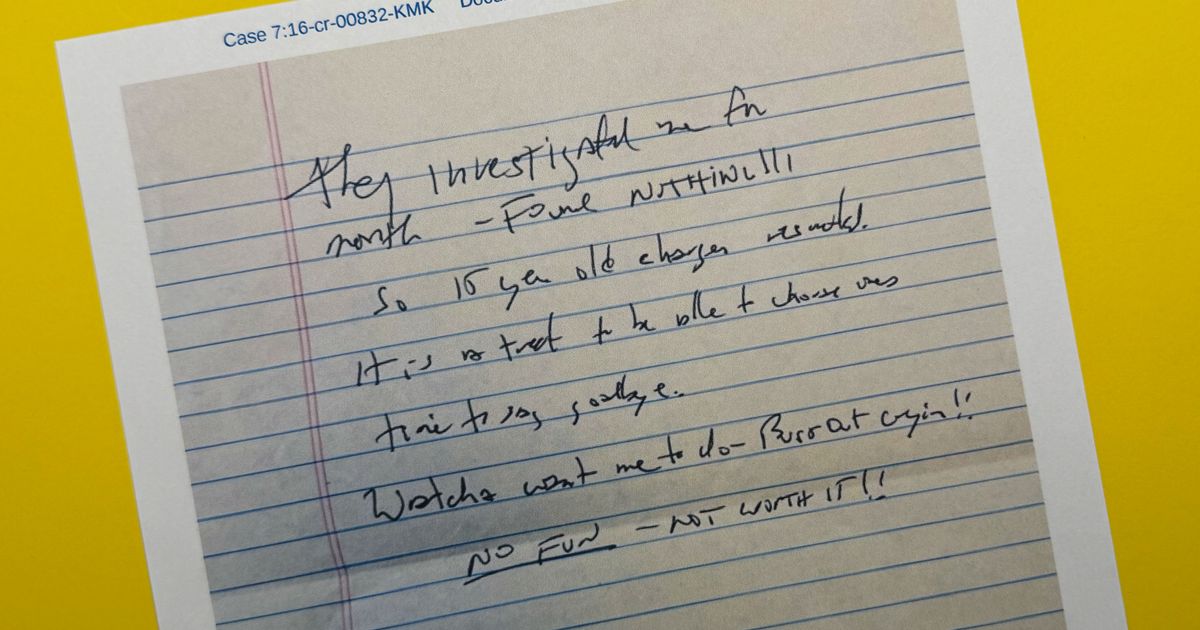 Case 7:16-cr-00832-KMK
They investigated me for
month - Found NOTHING!!!
So 15 year old charges
It is a treat to be able to choose ones
time to say goodbye.
Watcha want me to do - Burst out cryin!!
NO FUN - NOT WORTH IT!!